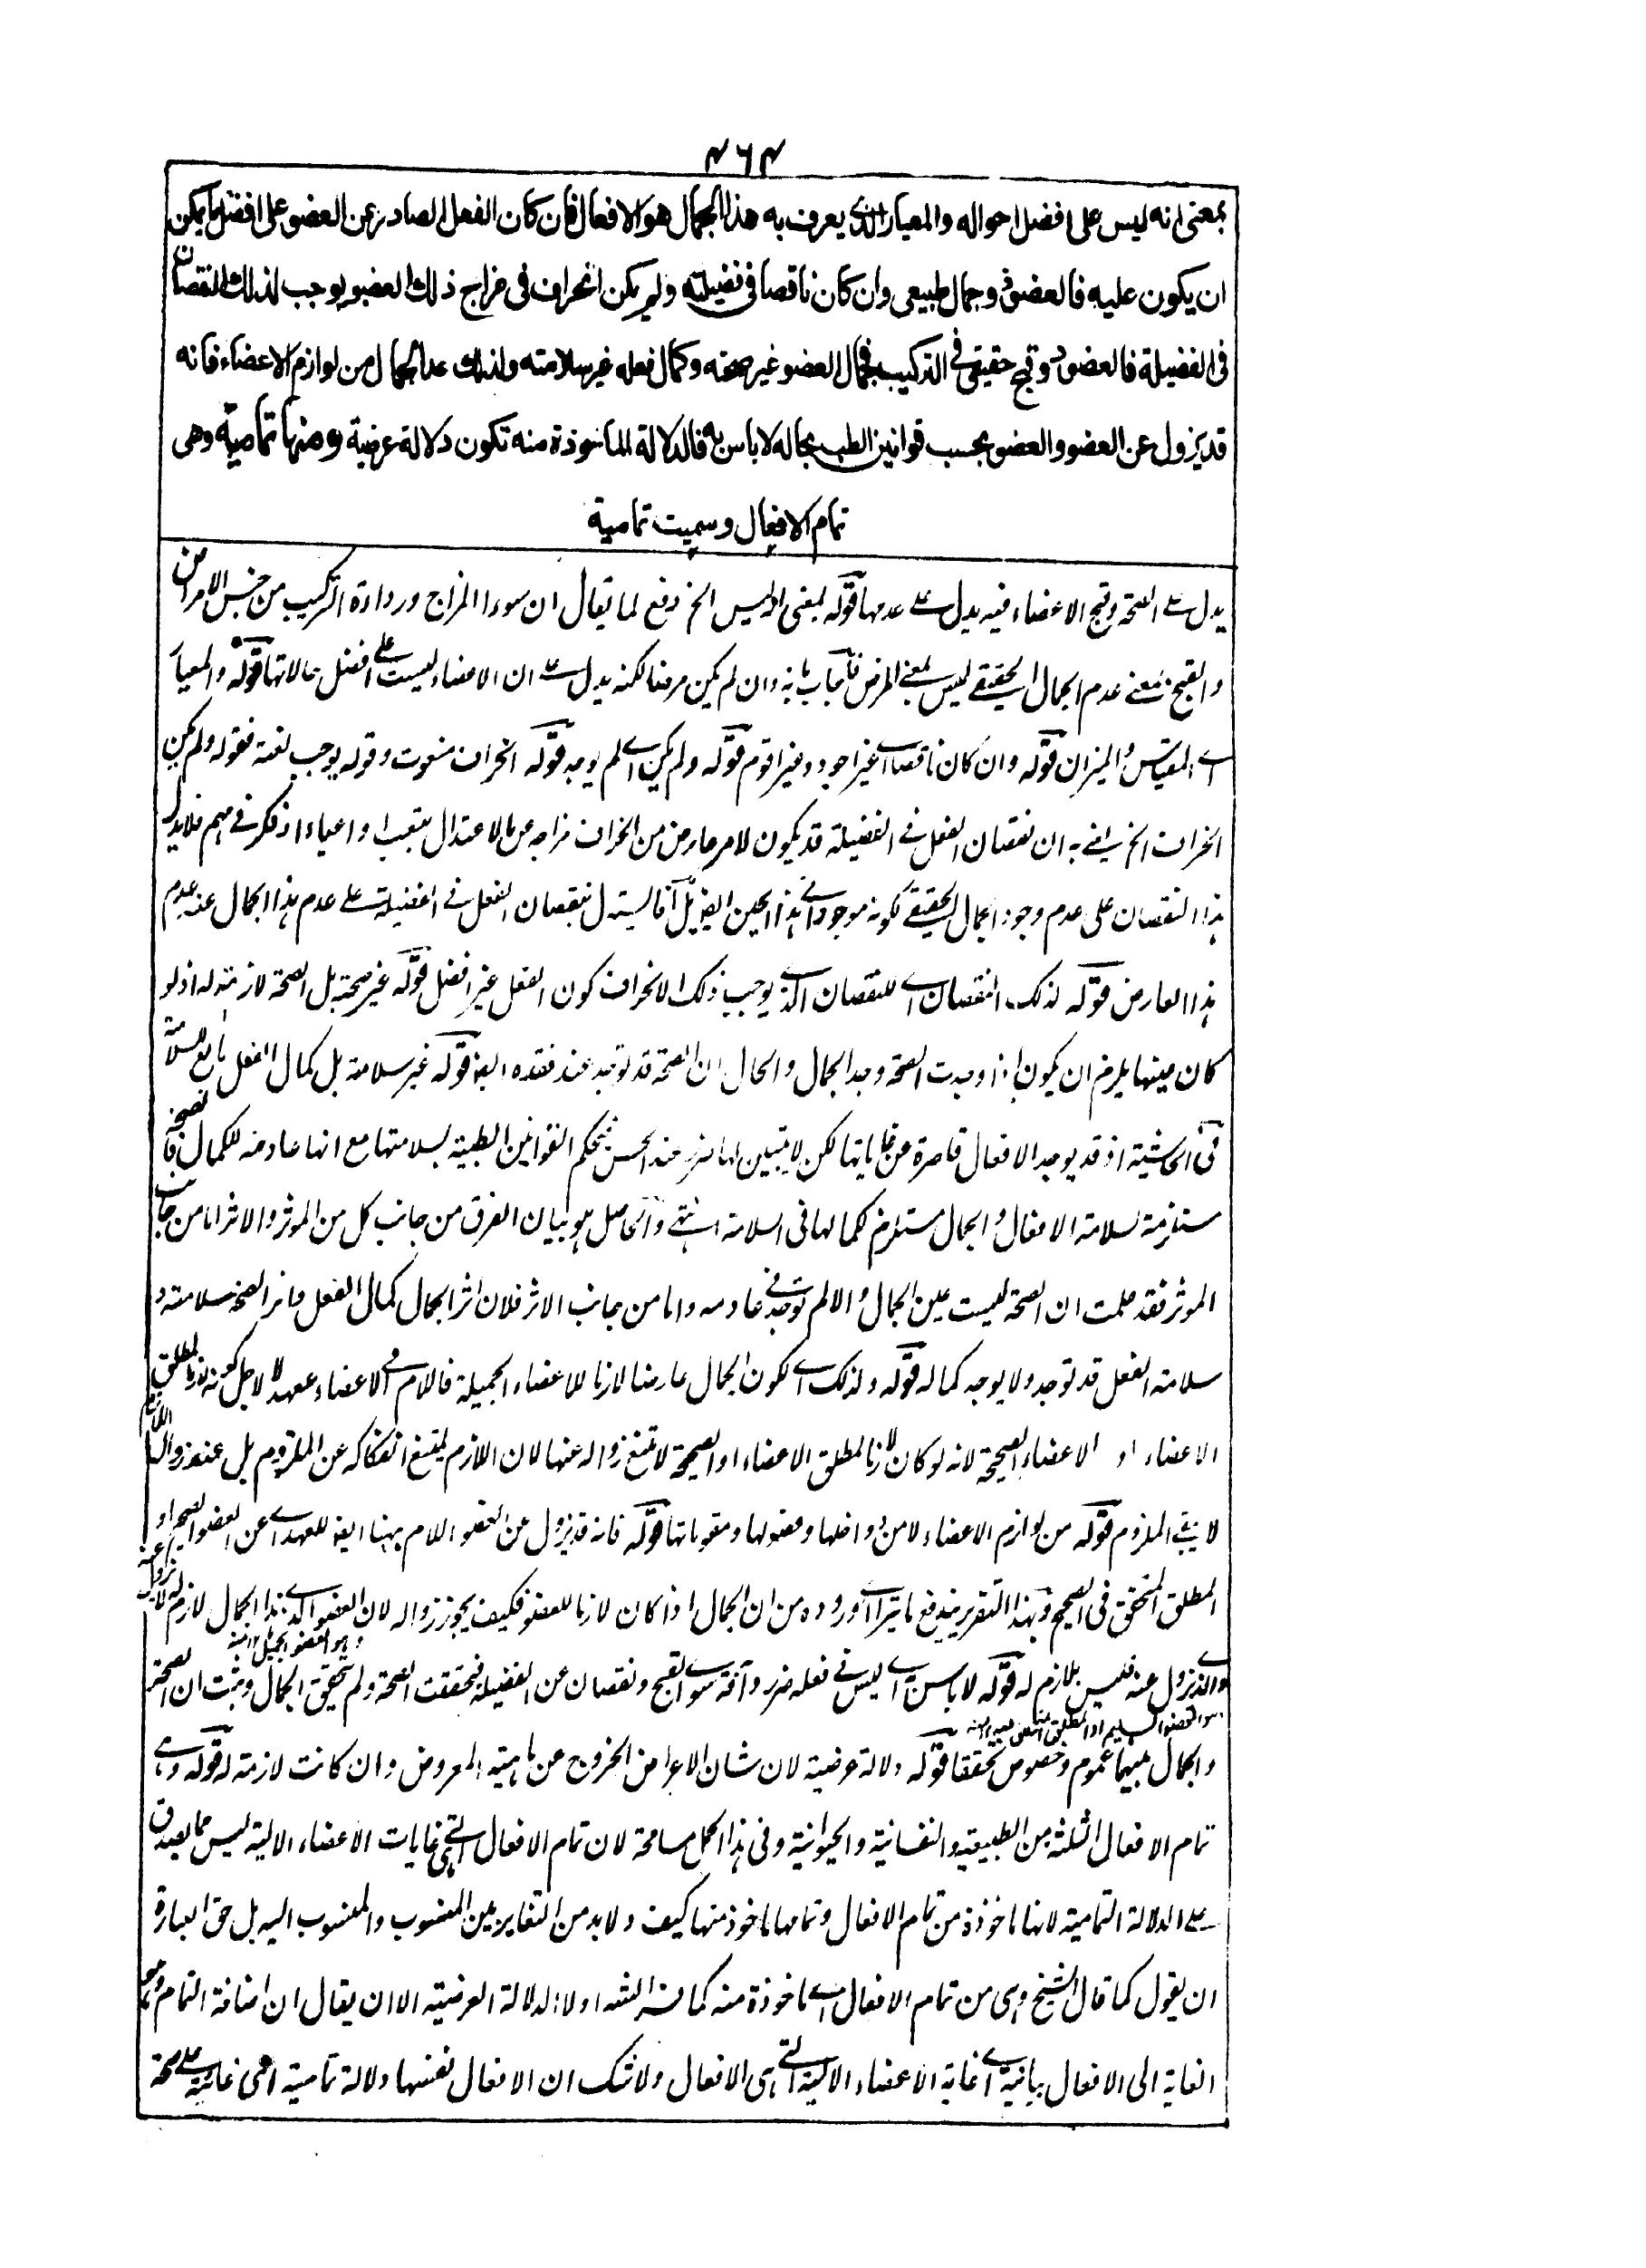 ٤٦٤
بمعنى انه ليس على افضل احواله والمعيار الذى يعرف به هذا الجمال هو الافعال فان كان الفعل الصادر عن العضو على افضل ما يمكن
ان يكون عليه فالعضو ذو جمال طبيعى وان كان ناقصا فى فضيلته ولم يكن انحراف فى مزاج ذلك العضو يوجب لذلك النقصان
فى الفضيلة فالعضو ذو قبح حقيقى فى التركيب فجمال العضو غير صحته وكمال فعله غير سلامته ولذلك عد الجمال من لوازم الاعضاء فانه
قد يزول عن العضو والعضو بحسب قوانين الطب بحاله لا باس به فالدلالة الماخوذة منه تكون دلالة عرضية ومنها تمامية وهى
تمام الافعال وسميت تمامية
يدل على الصحة وقبح الاعضاء فيه يدل على عدمها قوله بمعنى انه ليس الخ دفع لما يقال ان سوء المزاج ورداءة التركيب من جنس الامراض
والقبح بمعنى عدم الجمال الحقيقى ليس بمعنى المرض فاجاب بانه وان لم يكن مرضا لكنه يدل على ان الاعضاء ليست على افضل حالاتها قوله والمعيار
اى المقياس والميزان قوله وان كان ناقصا اى غير اجود وغير اقوم قوله ولم يكن اى لم يوجد قوله انحراف منعوت وقوله يوجب نعته فقوله ولم يكن
انحراف الخ يعنى به ان نقصان الفعل فى الفضيلة قد يكون لامر عارض من انحراف مزاجه عن الاعتدال بتعب او اعياء او فكر فى مهم فلا يدل
هذا النقصان على عدم وجود الجمال الحقيقى لكونه موجودا فى هذا الحين ايضا بل انما يستدل بنقصان الفعل فى الفضيلة على عدم هذا الجمال عند عدم
هذا العارض قوله لذلك النقصان اى للنقصان الذى يوجب ذلك الانحراف كون الفعل غير افضل قوله غير صحته بل الصحة لازمة له اذ لو
كان عينها يلزم ان يكون اذا وجدت الصحة وجد الجمال والحال ان الصحة قد توجد عند فقده ايضا قوله غير سلامته بل كمال الفعل تابع للسلامة
فى الحاشية اذ قد يوجد الافعال قاصرة عن غاياتها لكن لا يتبين لها ضرر عند الحس فيحكم القوانين الطبية بسلامتها مع انها عادمة للكمال فالصحة
مستلزمة لسلامة الافعال والجمال مستلزم لكمالها فى السلامة انتهى والحاصل هو بيان الفرق من جانب كل من الموثر والاثر اما من جانب
الموثر فقد علمت ان الصحة ليست عين الجمال والا لم توجد فى عادمه واما من جانب الاثر فلان اثر الجمال كمال الفعل واثر الصحة سلامته و
سلامة الفعل قد توجد ولا يوجد كماله قوله ولذلك اى لكون الجمال عارضا لازما للاعضاء الجميلة فاللام فى الاعضاء عهد لا لاجل كونه لازما لمطلق
الاعضاء او الاعضاء الصحيحة لانه لو كان لازما لمطلق الاعضاء او الصحيحة لامتنع زواله عنها لان اللازم يمتنع انفكاكه عن الملزوم بل عند زوال اللازم
لا يبقى الملزوم قوله من لوازم الاعضاء لا من ذواتها وفصولها ومقوماتها قوله فانه قد يزول عن العضو اللام ههنا ايضا للعهد اى عن العضو الصحيح او
المطلق المتحقق فى الصحيح وبهذا التقرير يندفع ما يتراءى وروده من ان الجمال اذا كان لازما للعضو فكيف يجوز زواله لان العضو الذى هذا الجمال لازم له لا يزول عنه
وهو العضو الجميل ١٢ منه
والذى يزول عنه فليس بلازم له قوله لا باس به اى ليس فى فعله ضرر وآفة سوى القبح ونقصان عن الفضيلة فتحققت الصحة ولم يتحقق الجمال وثبت ان الصحة
هو العضو السليم او المطلق
والجمال بينهما عموم وخصوص تحققا قوله دلالة عرضية لان شان الاعراض الخروج عن ماهية المعروض وان كانت لازمة له قوله وهى
تمام الافعال الثلثة من الطبيعية والنفسانية والحيوانية وفى هذا الحمل مسامحة لان تمام الافعال التى هى غايات الاعضاء الالية ليس مما يصدق
على الدلالة التمامية لانها ماخوذة من تمام الافعال وتمامها ماخوذ منها كيف ولا بد من التغاير بين المنسوب والمنسوب اليه بل حق العبارة
ان يقول كما قال الشيخ وهى من تمام الافعال اى ماخوذة منه كما فسر الشه اولا الدلالة العرضية الا ان يقال ان اضافة التمام وهو
الغاية الى الافعال بيانية اى غاية الاعضاء الالية التى هى الافعال ولا شك ان الافعال نفسها دلالة تمامية اعنى غائية على صحة